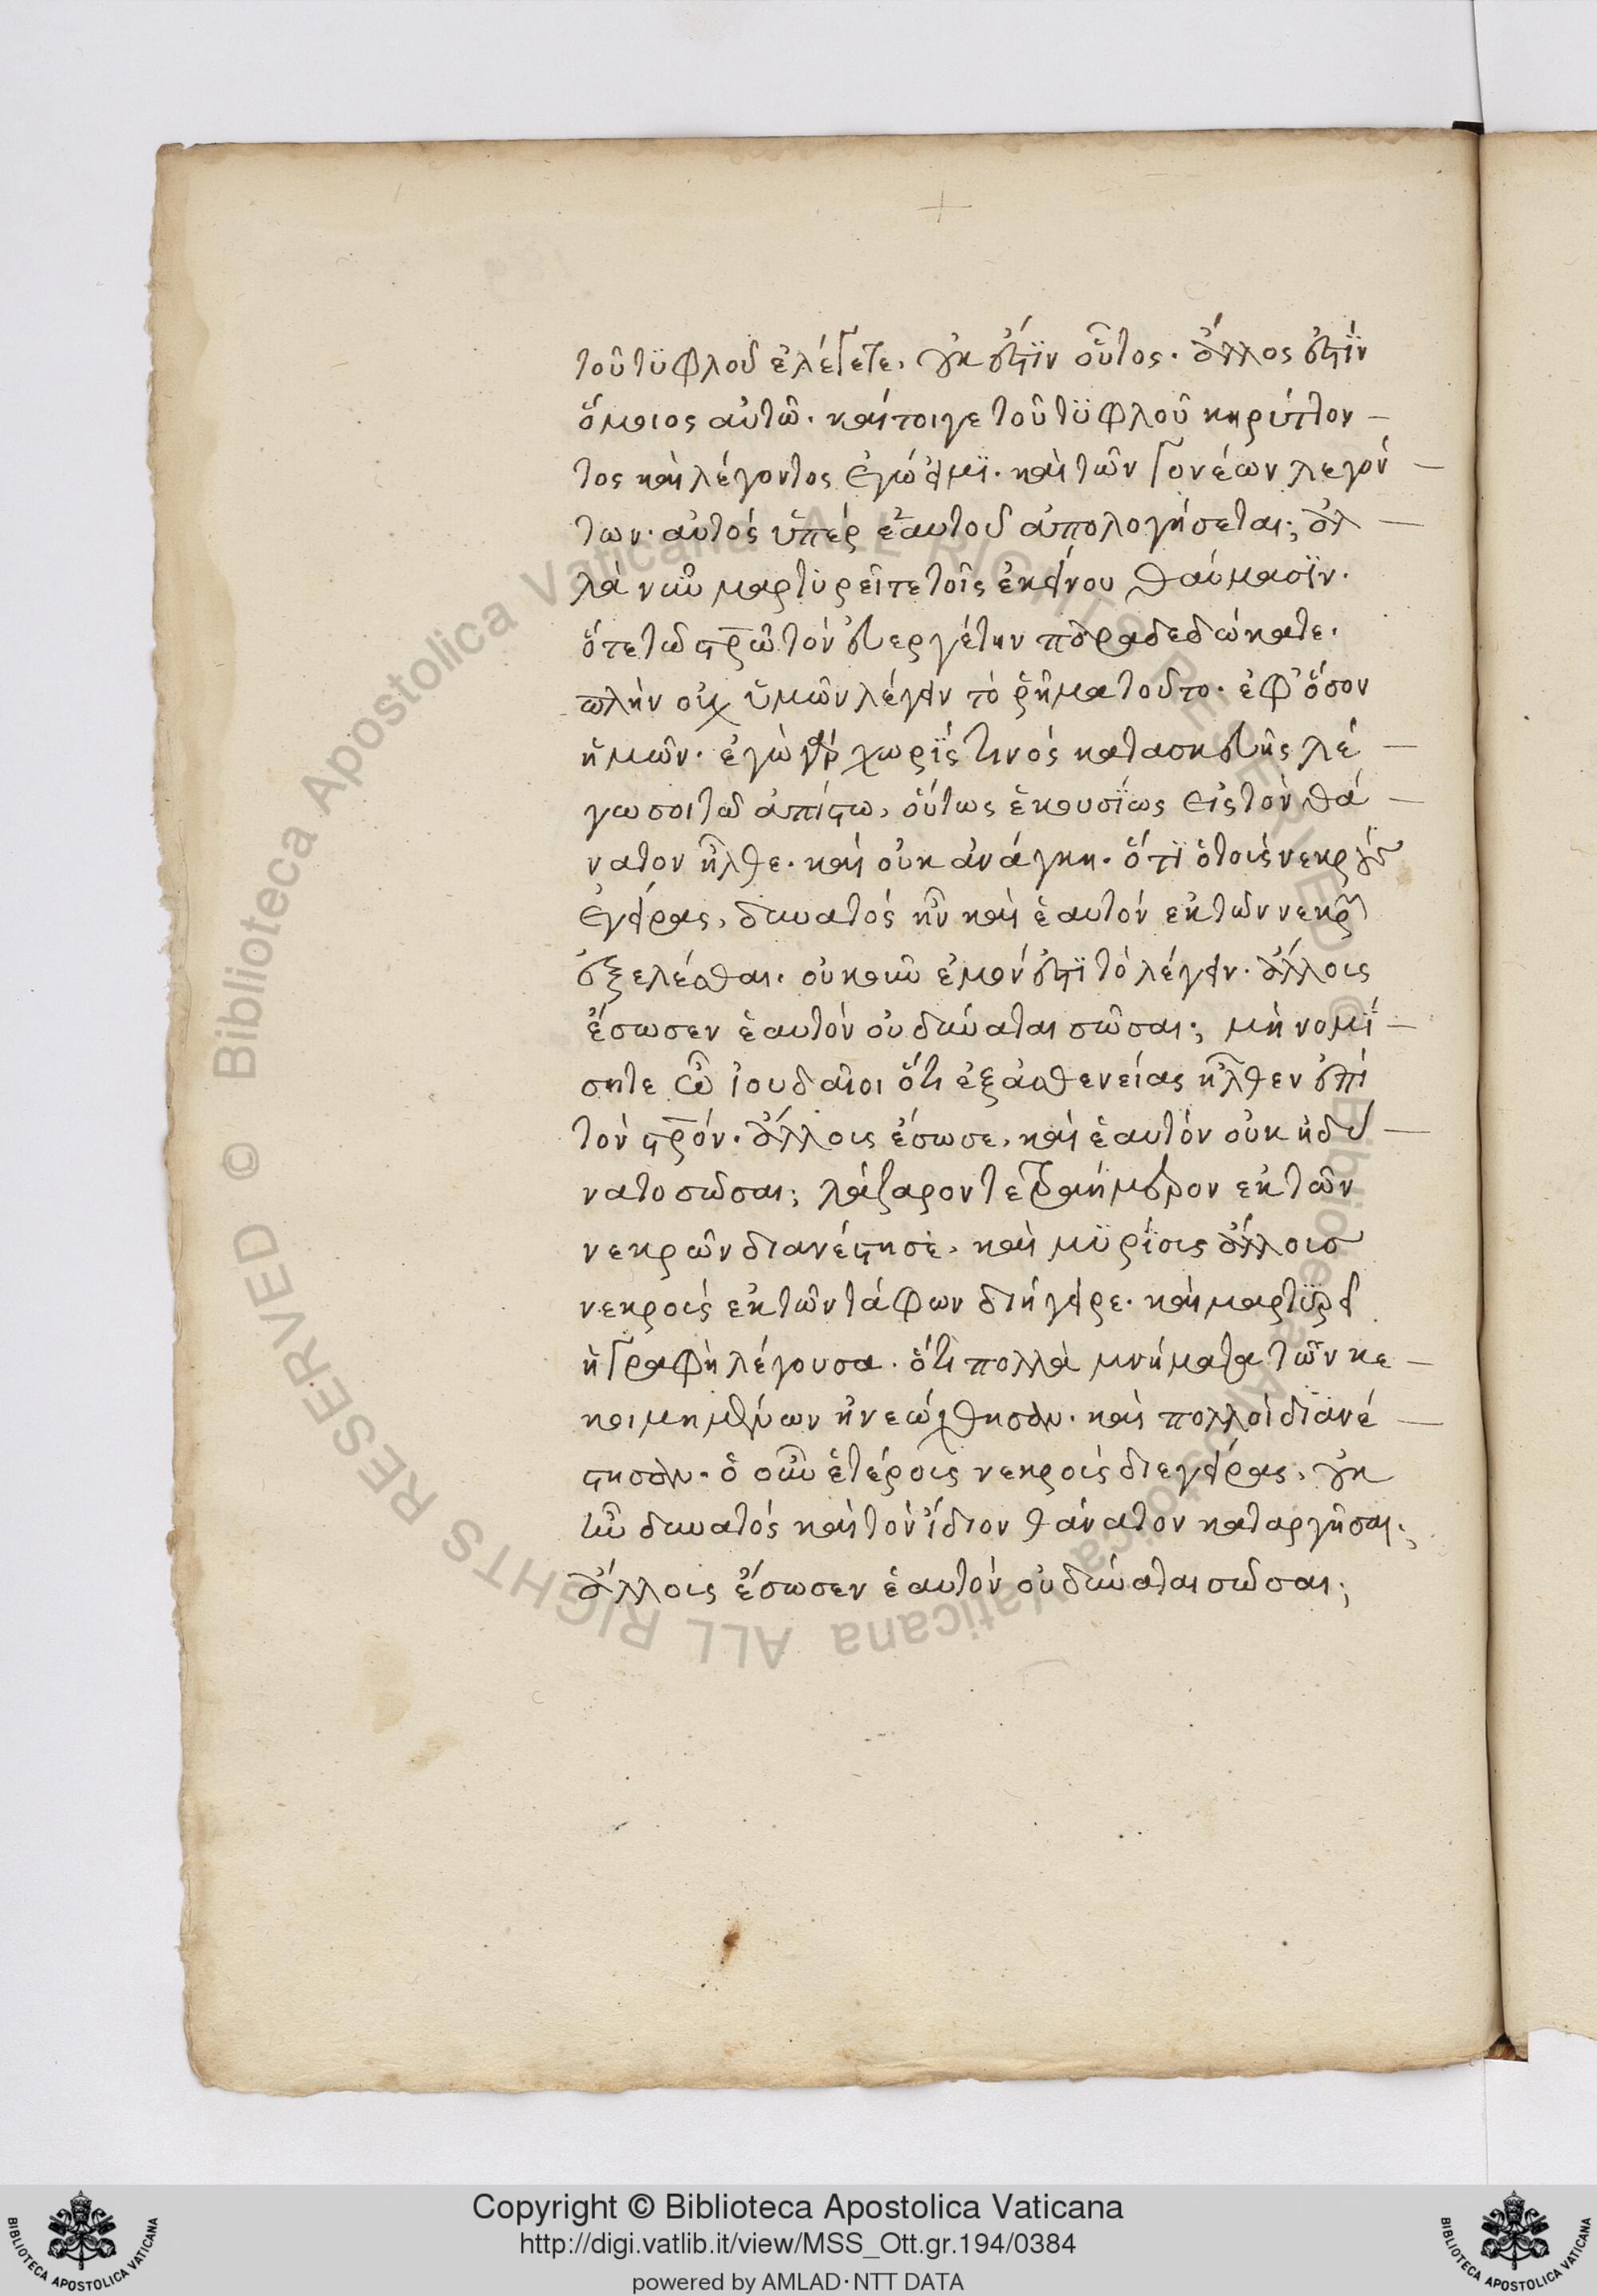 τοῦ τϋφλοῦ ἐλέγετε, οὐκ ἔστϊν οὗτος· ἄλλος ἐστϊν
ὅμοιος αὐτῶ· καίτοιγε τοῦ τϋφλοῦ κηρύττον-
τος καὶ λέγοντος ἐγώ εἰμϊ· καὶ τῶν γονέων λεγόν-
των· αὐτὸς ὑπὲρ ἑαυτοῦ ἀπολογήσεται; ἀλ-
λὰ νῦν μαρτϋρεῖτε τοῖς ἐκείνου θαύμασϊν·
ὅτε τῶ στρῶ τὸν εὐεργέτην παραδεδώκατε·
πλὴν οὐχ ὑμῶν λέγειν τὸ ῥῆμα τοῦτο· ἐφ' ὅσον
ἡμῶν· ἐγὼ γὰρ χωρϊς τινὸς κατασκευῆς λέ-
γω σοι τῶ ἀπίστω, οὕτως ἑκουσϊως εἰς τὸν θά-
νατον ἦλθε· καὶ οὐκ ἀνάγκη· ὅτϊ ὁ τοὺς νεκροὺς
ἐγείρας, δυνατὸς ἦν καὶ ἑαυτὸν ἐκ τῶν νεκρῶν
ἐξελέσθαι· οὐκοῦν ἐμόν ἐστϊ τὸ λέγειν· ἄλλοις
ἔσωσεν ἑαυτὸν οὐ δύναται σῶσαι; μὴ νομϊ-
σητε ὦ ἰουδαῖοι ὅτι ἐξ ἀσθενείας ἦλθεν ἐπὶ
τὸν στρόν· ἄλλοις ἔσωσε, καὶ ἑαυτὸν οὐκ ἠδύ-
νατο σῶσαι; λάζαρον τετραήμερον ἐκ τῶν
νεκρῶν διανέστησε, καὶ μϋρίοις ἄλλοις
νεκροὶς ἐκ τῶν τάφων διήγειρε· καὶ μαρτϋρεῖ
ἡ γραφὴ λέγουσα· ὅτι πολλὰ μνήματα τῶν κε-
κοιμημένων ἠνεώχθησαν· καὶ πολλοὶ διανέ-
στησαν· ὁ οὖν ἑτέροις νεκροὶς διεγείρας, οὐκ
ἦν δυνατὸς καὶ τὸν ἴδιον θάνατον καταργῆσαι;
ἄλλοις ἔσωσεν ἑαυτὸν οὐ δύναται σῶσαι;
Copyright © Biblioteca Apostolica Vaticana
http://digi.vatlib.it/view/MSS_Ott.gr.194/0384
powered by AMLAD·NTT DATA
BIBLIOTECA APOSTOLICA VATICANA
BIBLIOTECA APOSTOLICA VATICANA
© Biblioteca Apostolica Vaticana ALL RIGHTS RESERVED
© Biblioteca Apostolica Vaticana ALL RIGHTS RESERVED